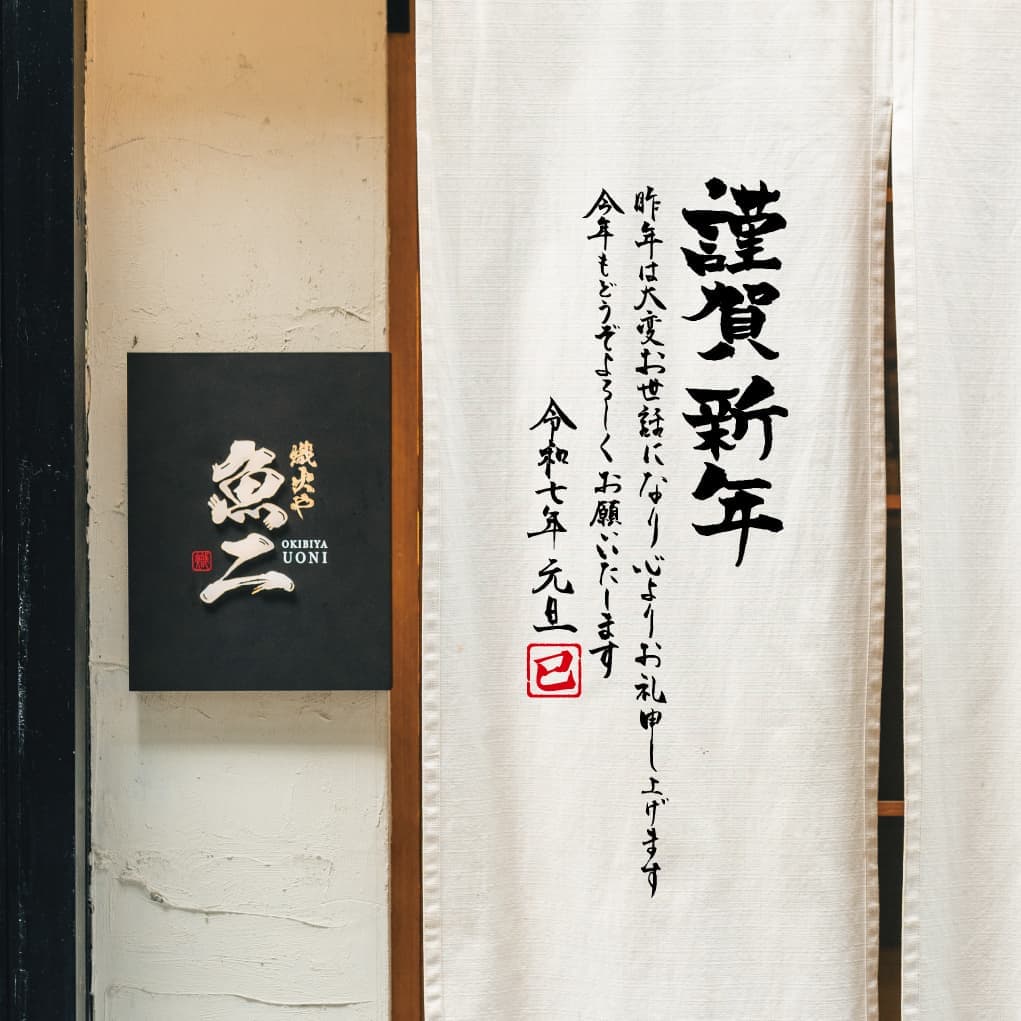 謹賀新年
昨年は大変お世話になり心よりお礼申し上げます
今年もどうぞよろしくお願いいたします
令和七年 元旦
巳
熾火や
魚二
OKIBIYA
UONI
熾